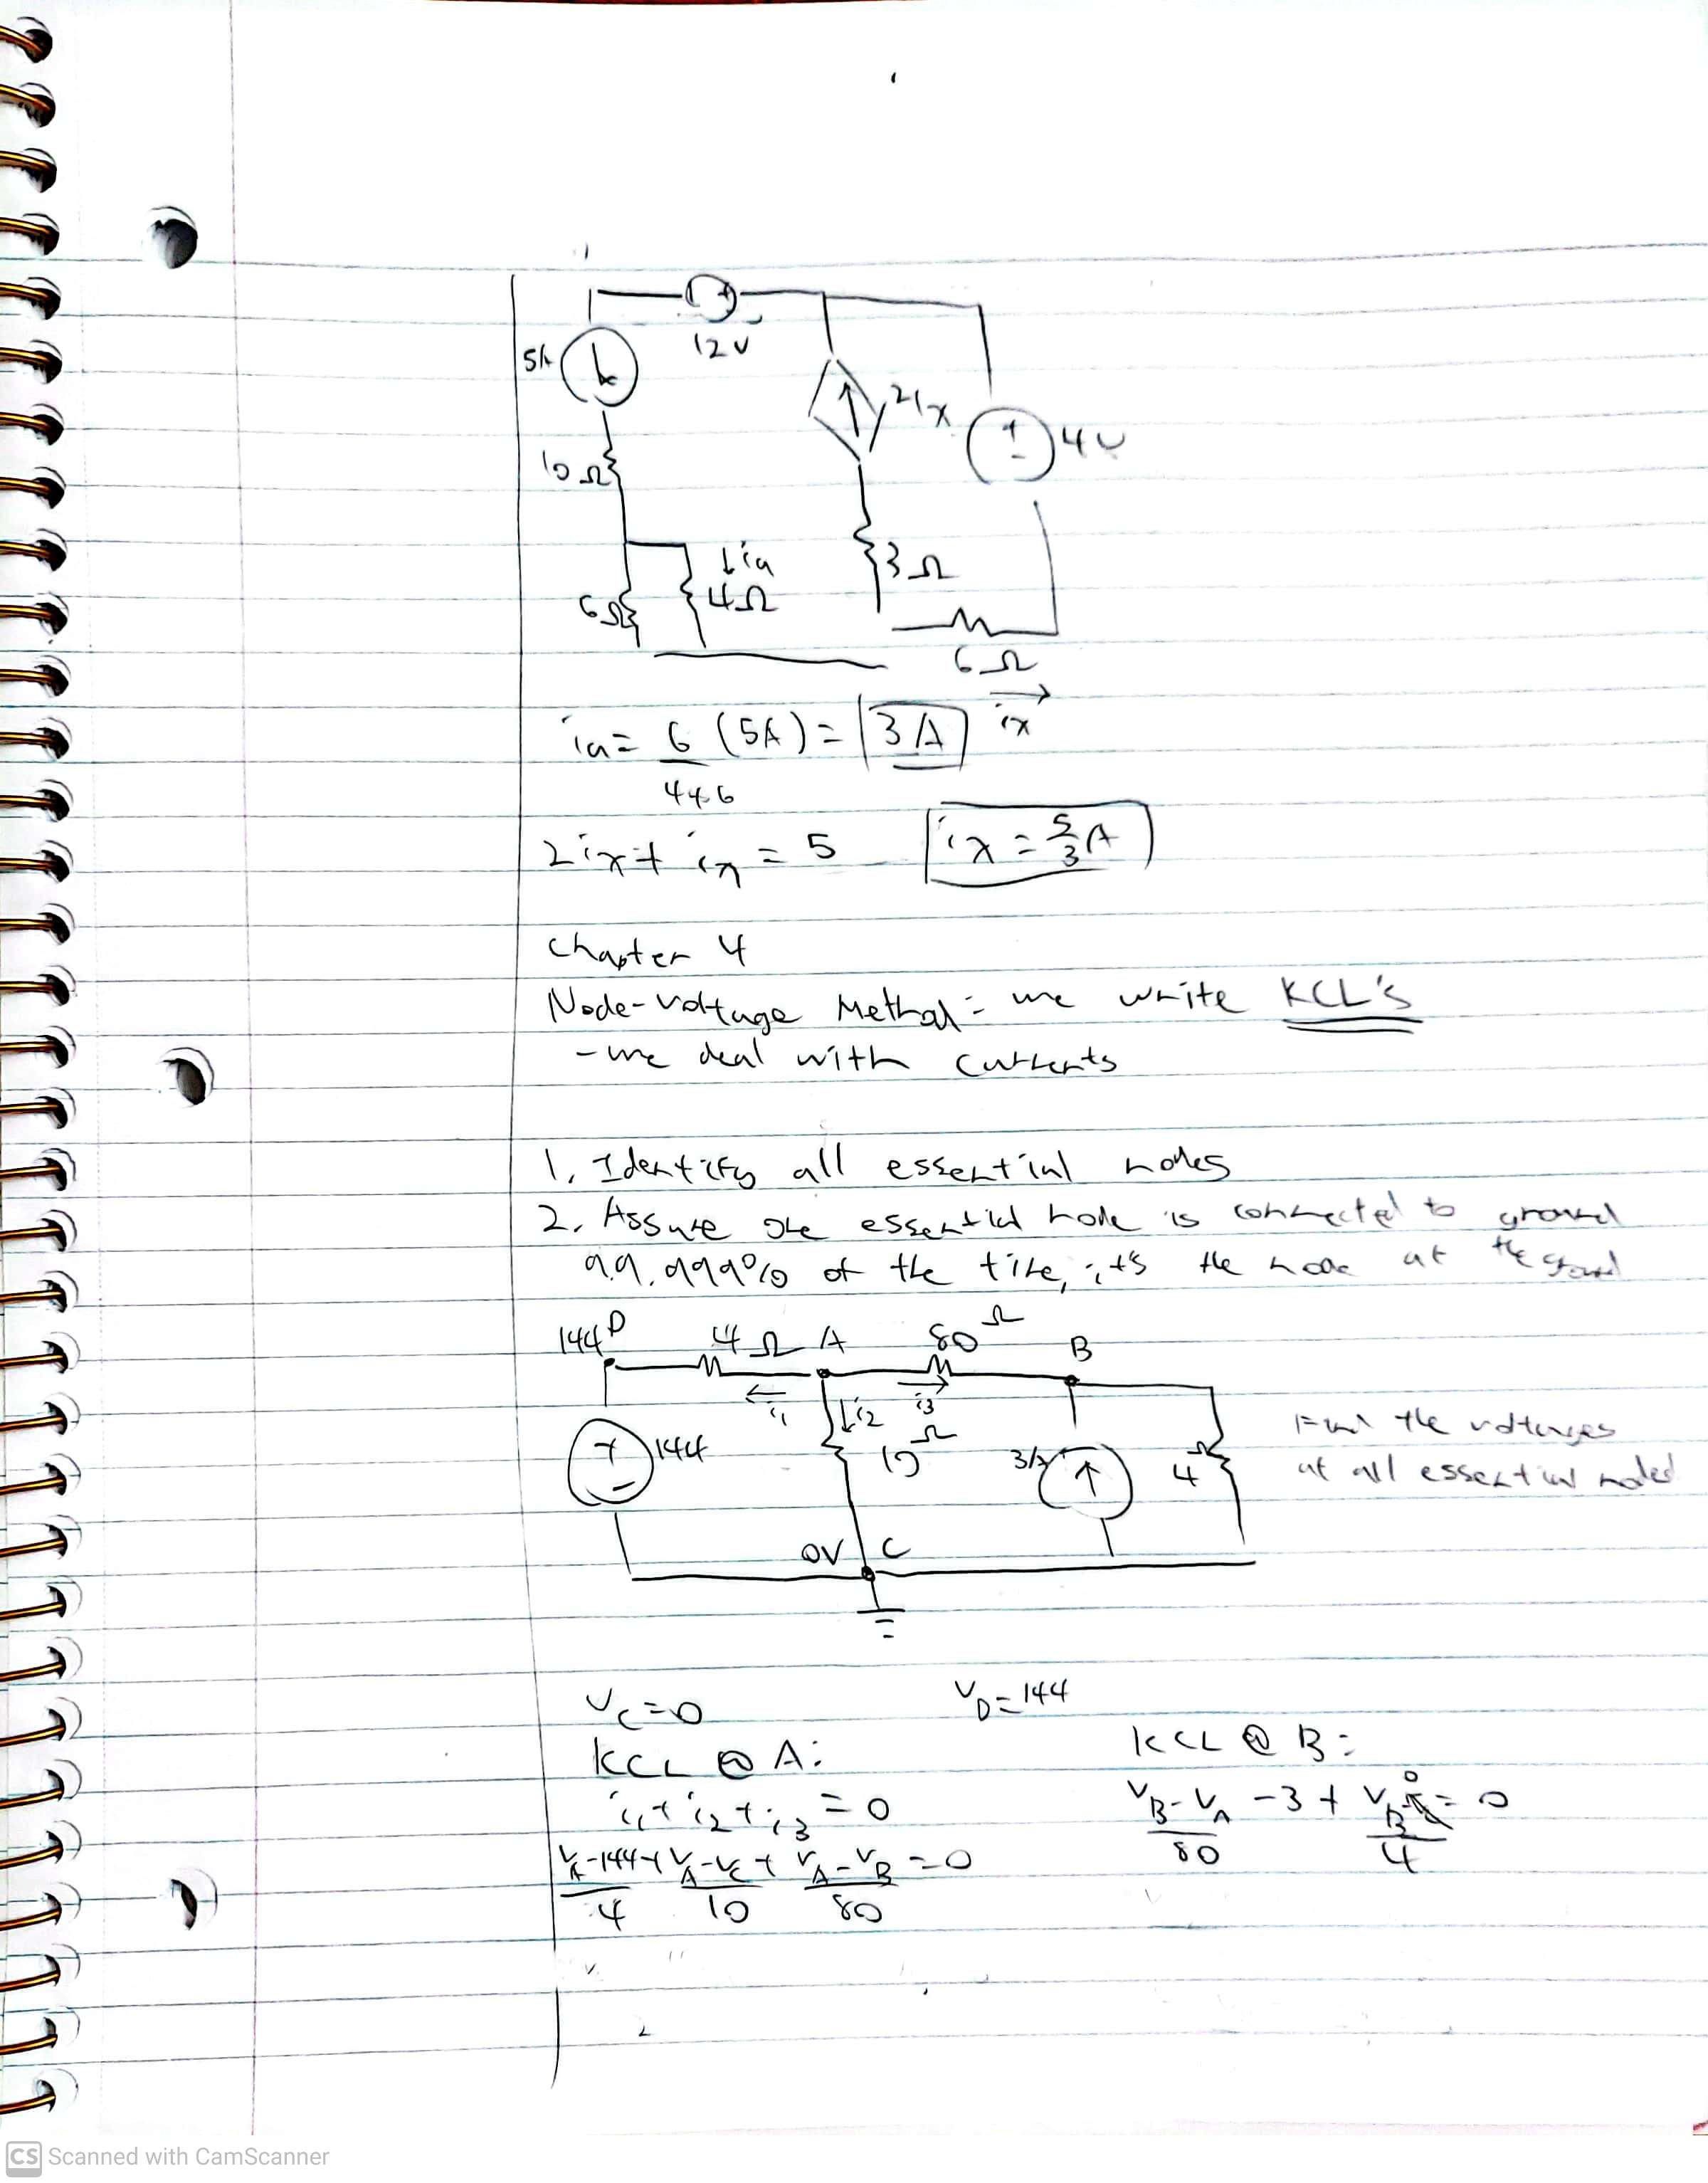 12V
5A
2ix
4V
10Ω
↓ia
3Ω
6Ω
4Ω
6Ω
ix
ia = 6/(4+6) (5A) = 3A
2ix + ix = 5   ix = 5/3 A
Chapter 4
Node-Voltage Method: we write KCL's
- we deal with currents
1. Identify all essential nodes
2. Assume one essential node is connected to ground
99.999% of the time, it's the node at the ground
144 D 4Ω A 80Ω B
i1 ↓i2 i3
144 10Ω 3A 4Ω
Find the voltages
at all essential nodes
0V C
VC = 0   VD = 144
KCL @ A:
i1 + i2 + i3 = 0
(VA - 144)/4 + (VA - VC)/10 + (VA - VB)/80 = 0
KCL @ B:
(VB - VA)/80 - 3 + (VB - 0)/4 = 0
CS Scanned with CamScanner